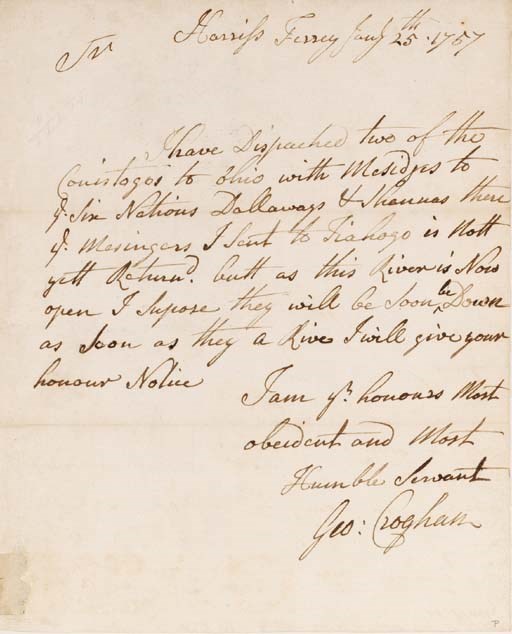 Harriss Ferrey Jany 25th. 1757
Sr
I have Dispached two of the
Conistogos to Ohio with Mesidges to
ye. Six Nations Dallaways & Shannas there
ye. Mesingers I Sent to Tiahogo is Nott
yett Returnd. butt as this River is Now
open I Supose they will be Soon be Down
as Soon as they a Rive I will give your
honour Notice
I am yr. honours Most
obeident and Most
Humble Servant
Geo: Croghan